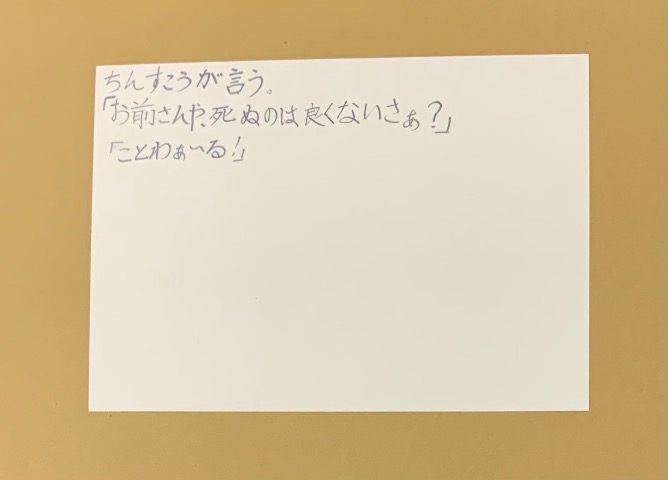 ちんすこうが言う。
「お前さんや、死ぬのは良くないさぁ?」
「ことわぁ〜る!」